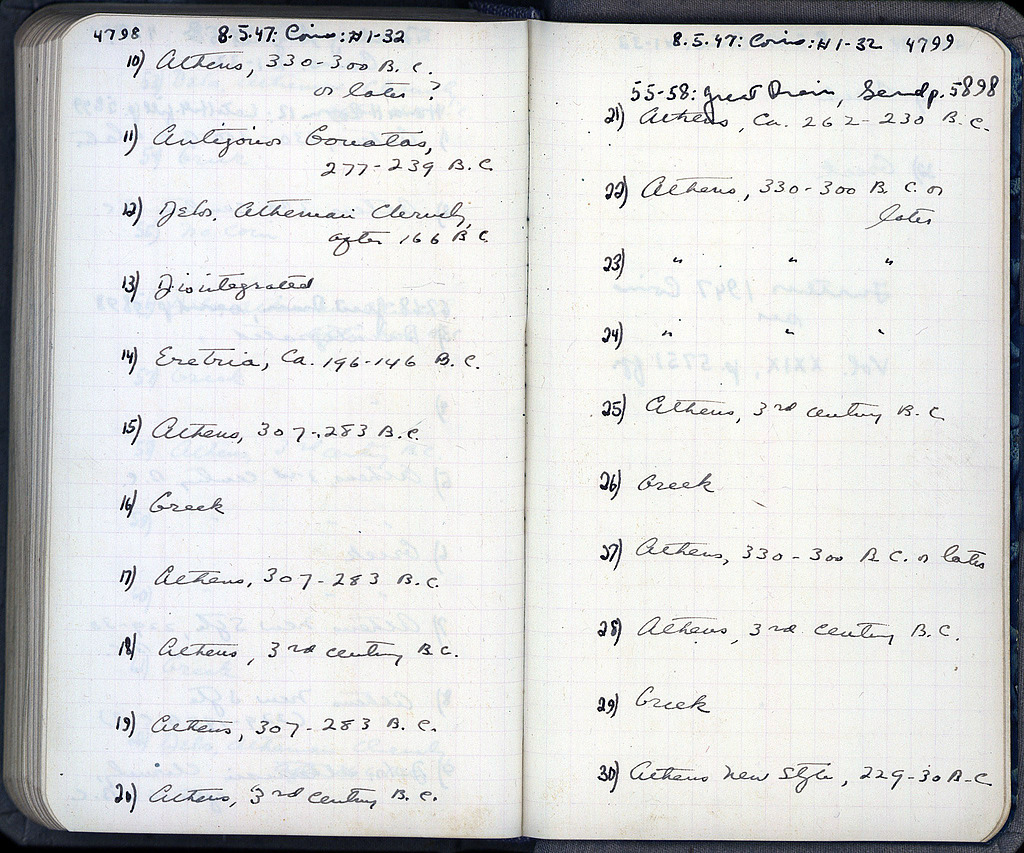 4798 8.5.47: Coins: #1-32
10) Athens, 330-300 B.C.
or later ?
11) Antigonos Gonatas,
277-239 B.C.
12) Delos, Athenian Cleruchy,
after 166 B C
13) Disintegrated
14) Eretria, Ca. 196-146 B.C.
15) Athens, 307-283 B.C.
16) Greek
17) Athens, 307-283 B.C.
18) Athens, 3rd century B.C.
19) Athens, 307-283 B.C.
20) Athens, 3rd century B.C.
8.5.47: Coins: #1-32 4799
55-58: Great Drain, Sand p. 5898
21) Athens, Ca. 262-230 B.C.
22) Athens, 330-300 B.C. or
later
23) " " "
24) " " "
25) Athens, 3rd century B.C
26) Greek
27) Athens, 330-300 B.C. or later
28) Athens, 3rd century B.C.
29) Greek
30) Athens New Style, 229-30 B.C